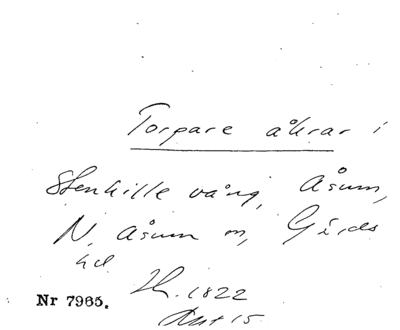 Torpare åkrar i
Stenkille vång, Åsum,
N. Åsum sn, Gärds
hd
1822
Nr 7965.